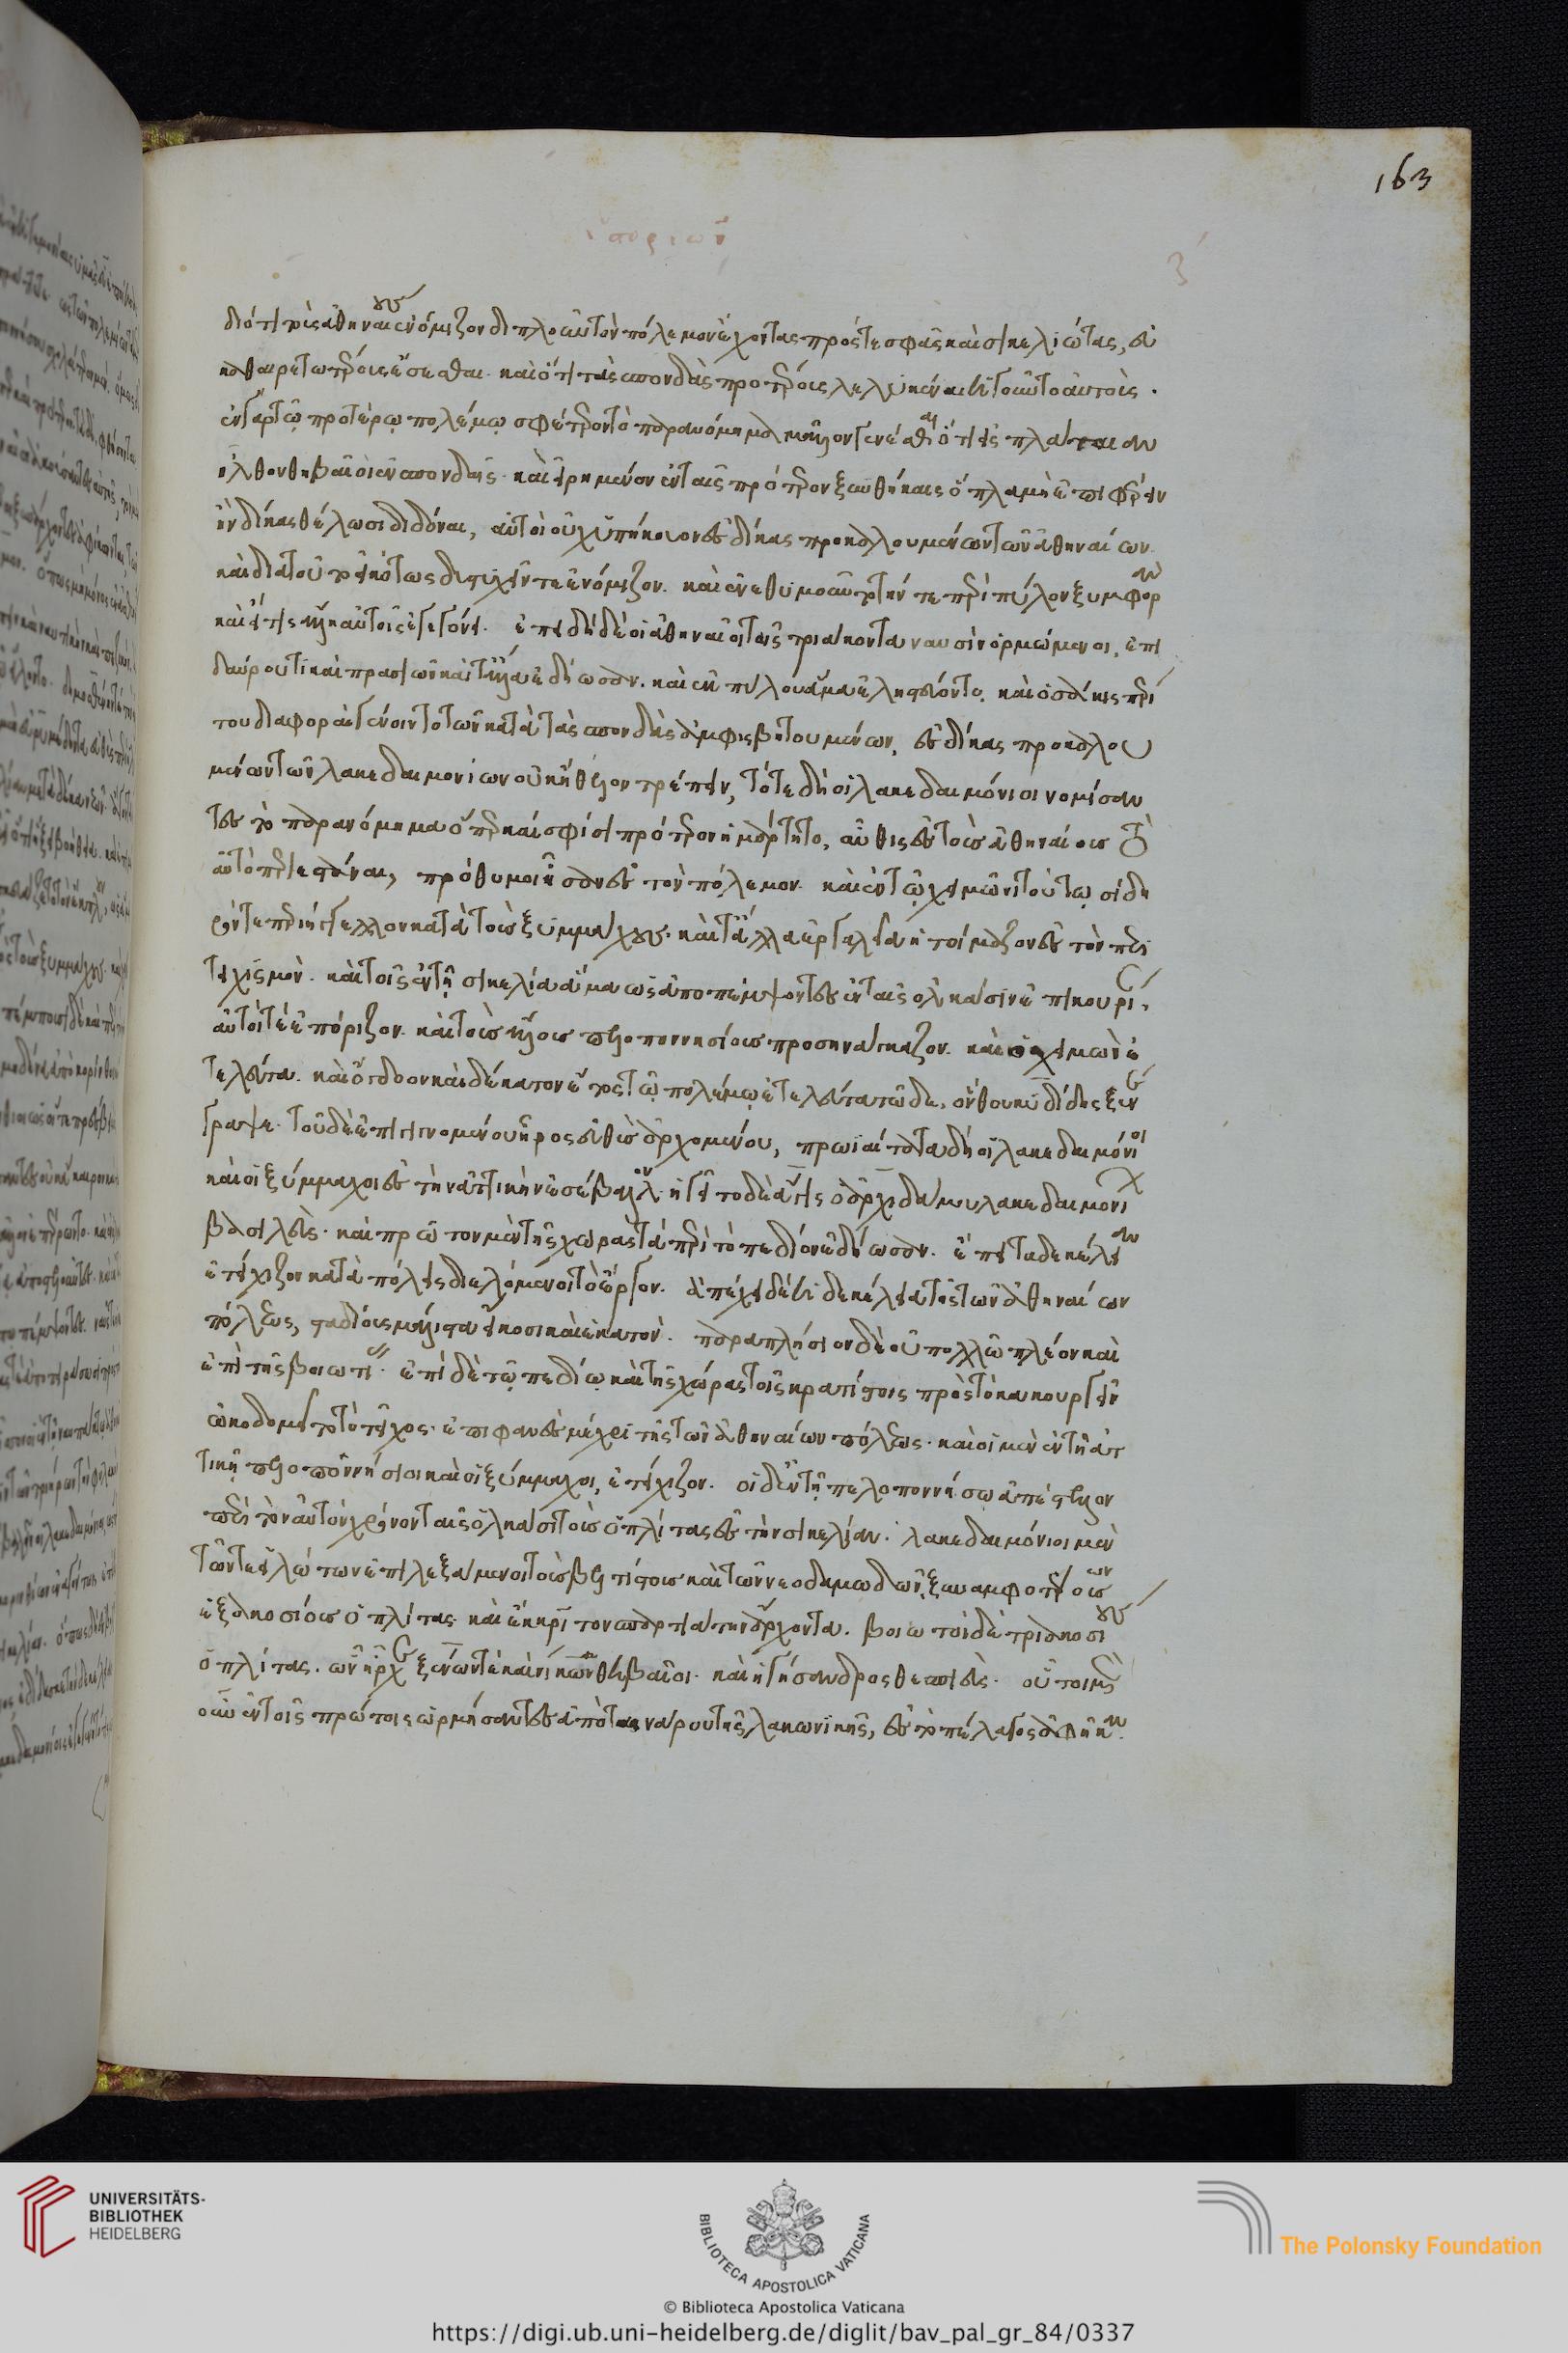 163
διότι τοὺς ἀθηναίους ἐνόμιζον διπλοῦν τὸν πόλεμον ἔχοντας πρός τε σφᾶς καὶ σικελιώτας, εὐ
καθαιρετωτέρους ἔσεσθαι. καὶ ὅτι τὰς σπονδὰς προτέρους λελυκέναι ἡγοῦντο αὐτοὺς.
ἐν γὰρ τῷ προτέρῳ πολέμῳ σφέτερον τὸ παρανόμημα μᾶλλον γενέσθαι ὅτι ἐς πλάταιαν
ἦλθον θηβαῖοι ἐν σπονδαῖς. καὶ εἰρημένον ἐν ταῖς πρότερον ξυνθήκαις ὅπλα μὴ ἐπιφέρειν
ἢν δίκας θέλωσι διδόναι, αὐτοὶ οὐχ ὑπήκουον ἐς δίκας προκαλουμένων τῶν ἀθηναίων.
καὶ διὰ τοῦτο εἰκότως δυστυχεῖν τε ἐνόμιζον. καὶ ἐνεθυμοῦντο τήν τε περὶ πύλον ξυμφορὰν
καὶ εἴ τις ἄλλη αὐτοῖς ἐγεγόνει. ἐπειδὴ δὲ οἱ ἀθηναῖοι ταῖς τριάκοντα ναυσὶν ὁρμώμενοι, ἐπι
δαύρου τι καὶ πρασιῶν καὶ τἄλλα ἐδῄωσαν. καὶ ἐκ πύλου ἅμα ἐληιστεύοντο. καὶ ὁσάκις περί
του διαφοραὶ γένοιντο τῶν κατὰ τὰς σπονδὰς ἀμφισβητουμένων, ἐς δίκας προκαλου
μένων τῶν λακεδαιμονίων οὐκ ἤθελον τρέπειν, τότε δὴ οἱ λακεδαιμόνιοι νομίσαν
τες τὸ παρανόμημα ὅπερ καὶ σφίσι πρότερον ἡμάρτητο, αὖθις ἐς τοὺς ἀθηναίους τὸ
αὐτὸ περιεστάναι, πρόθυμοι ἦσαν ἐς τὸν πόλεμον. καὶ ἐν τῷ χειμῶνι τούτῳ σίδη
ρόν τε περιήγγελλον κατὰ τοὺς ξυμμάχους. καὶ τἄλλα ἐργαλεῖα ἡτοίμαζον ἐς τὸν ἐπι
τειχισμόν. καὶ τοῖς ἐν τῇ σικελίᾳ ἅμα ὡς ἀποπέμψοντες ἐν ταῖς ὁλκάσιν ἐπικουρί.
αὐτοί τε ἐπόριζον. καὶ τοὺς ἄλλους πελοποννησίους προσηνάγκαζον. καὶ ὁ χειμὼν ἐ
τελεύτα. καὶ ὄγδοον καὶ δέκατον ἔτος τῷ πολέμῳ ἐτελεύτα τῷδε, ὃν θουκυδίδης ξυν
έγραψε. τοῦ δὲ ἐπιγιγνομένου ἦρος εὐθὺς ἀρχομένου, πρωϊαίτατα δὴ οἱ λακεδαιμόνιοι
καὶ οἱ ξύμμαχοι ἐς τὴν ἀττικὴν ἐσέβαλον. ἡγεῖτο δὲ ἆγις ὁ ἀρχιδάμου λακεδαιμονί
βασιλεὺς. καὶ πρῶτον μὲν τῆς χώρας τὰ περὶ τὸ πεδίον ἐδῄωσαν. ἔπειτα δεκέλειαν
ἐτείχιζον κατὰ πόλεις διελόμενοι τὸ ἔργον. ἀπέχει δὲ ἡ δεκέλεια τῆς τῶν ἀθηναίων
πόλεως, σταδίους μάλιστα εἴκοσι καὶ ἑκατόν. παραπλήσιον δὲ οὐ πολλῷ πλέον καὶ
ἐπὶ τῆς βοιωτίας. ἐπὶ δὲ τῷ πεδίῳ καὶ τῆς χώρας τοῖς κρατίστοις πρὸς τὸ κακουργεῖν
ᾠκοδομεῖτο τὸ τεῖχος. ἐπιφανὲς μέχρι τῆς τῶν ἀθηναίων πόλεως. καὶ οἱ μὲν ἐν τῇ ἀτ
τικῇ πελοποννήσιοι καὶ οἱ ξύμμαχοι, ἐτείχιζον. οἱ δ' ἐν τῇ πελοποννήσῳ ἀπέστελλον
περὶ τὸν αὐτὸν χρόνον ταῖς ὁλκάσι τοὺς ὁπλίτας ἐς τὴν σικελίαν. λακεδαιμόνιοι μὲν
τῶν τε εἱλώτων ἐπιλεξάμενοι τοὺς βελτίστους καὶ τῶν νεοδαμωδῶν, ξυναμφοτέρους
ἑξακοσίους ὁπλίτας. καὶ ἔκκριτον σπαρτιάτην ἄρχοντα. βοιωτοὶ δὲ τριακοσίους
ὁπλίτας. ὧν ἦρχον ξένων τε καὶ νίκων θηβαῖοι. καὶ ἡγήσανδρος θεσπιεὺς. οὗτοι μὲν
οὖν ἐν τοῖς πρώτοις ὁρμήσαντες ἀπὸ ταινάρου τῆς λακωνικῆς, ἐς τὸ πέλαγος ἀφῆκαν.
UNIVERSITÄTS-
BIBLIOTHEK
HEIDELBERG
BIBLIOTECA APOSTOLICA VATICANA
The Polonsky Foundation
© Biblioteca Apostolica Vaticana
https://digi.ub.uni-heidelberg.de/diglit/bav_pal_gr_84/0337